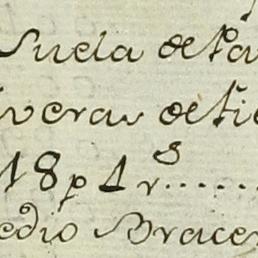 Suela de Pa
iveras de Fie
18 p 1 r.s......
edio Bracer